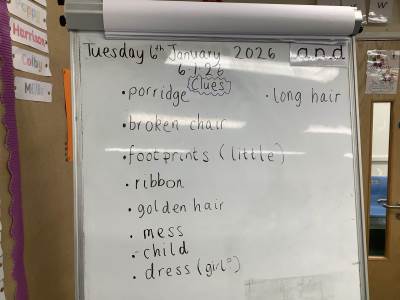 Poppy
Harrison
Colby
Millie
Tuesday 6th January 2026
and
6.1.26
Clues
• porridge
• long hair
• broken chair
• footprints (little)
• ribbon
• golden hair
• mess
• child
• dress (girl?)
w